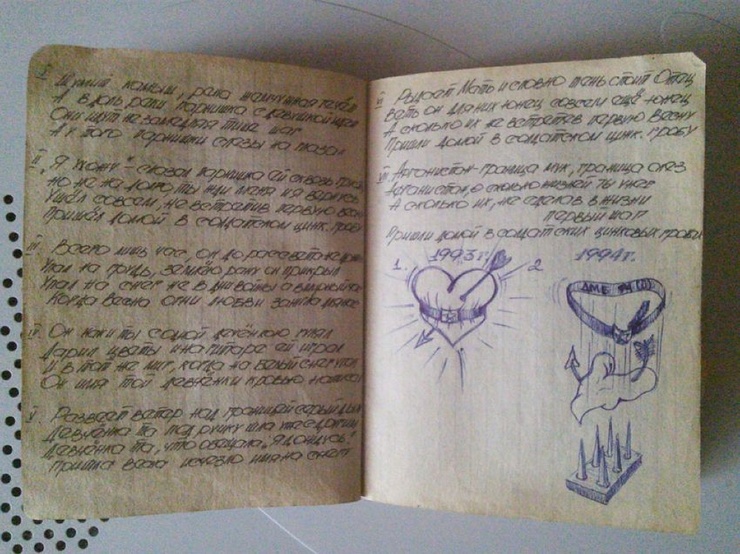 I Шумит камыш, река жемчужная течёт
А вдоль реки парнишка с девушкой идёт
Они идут не замедляя тише шаг
А у того парнишки слёзы на глазах
II „Я ухожу" - сказал парнишка ей сквозь
но не на долго ты жди меня и я вернусь
Ушёл совсем, не встретив первую весну
Пришёл домой в солдатском цинк. гробу
III Всего лишь час, он до рассвета не дожил
Упал на грудь, землёю рану он прикрыл
Упал на снег не в дни войны а в мирной час
Когда весна огни любви зажгла для нас
IV Он у пехоты самой
Дарил цветы и на гитаре ей играл
И в тот же миг, когда на белый снег упал
Он имя той девчёнки кровью написал
V Развеет ветер над границей серый дым
Девчёнка та под ручку шла уже с другим
Девчёнка та, что обещала „Я дождусь"
Пришла весна исчезло имя на снегу
VI Рыдает Мать и словно тень стоит Отец
Ведь он для них юнец совсем ещё юнец
А сколько их не встретив первую весну
Пришли домой в солдатском цинк. гробу
VII Афганистон - граница мук, граница слёз
Афганистон, о сколько жизней ты унёс
А сколько их, не сделав в жизни
первый шаг
Пришли домой в солдатских цинковых гробах
1. 1993г. 2 1994г.
ДМБ 94 (0)